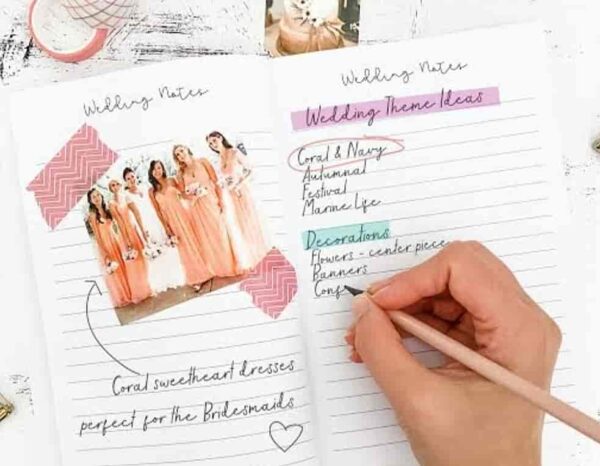 Wedding Notes
Coral sweetheart dresses
perfect for the Bridesmaids
Wedding Notes
Wedding Theme Ideas
Coral & Navy
Autumnal
Festival
Marine Life
Decorations
Flowers - center piece
Banners
Conf